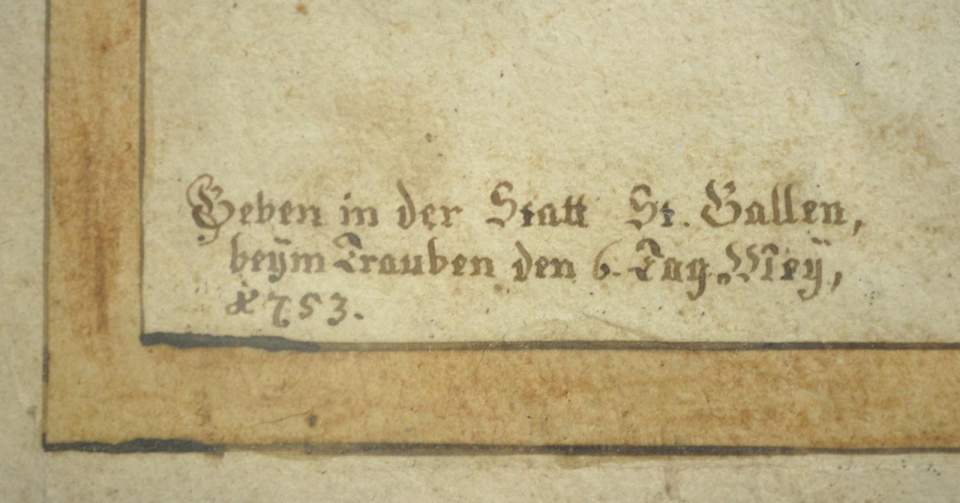 Geben in der Statt St. Gallen,
beÿm Trauben den 6. Tag Meÿ,
1753.